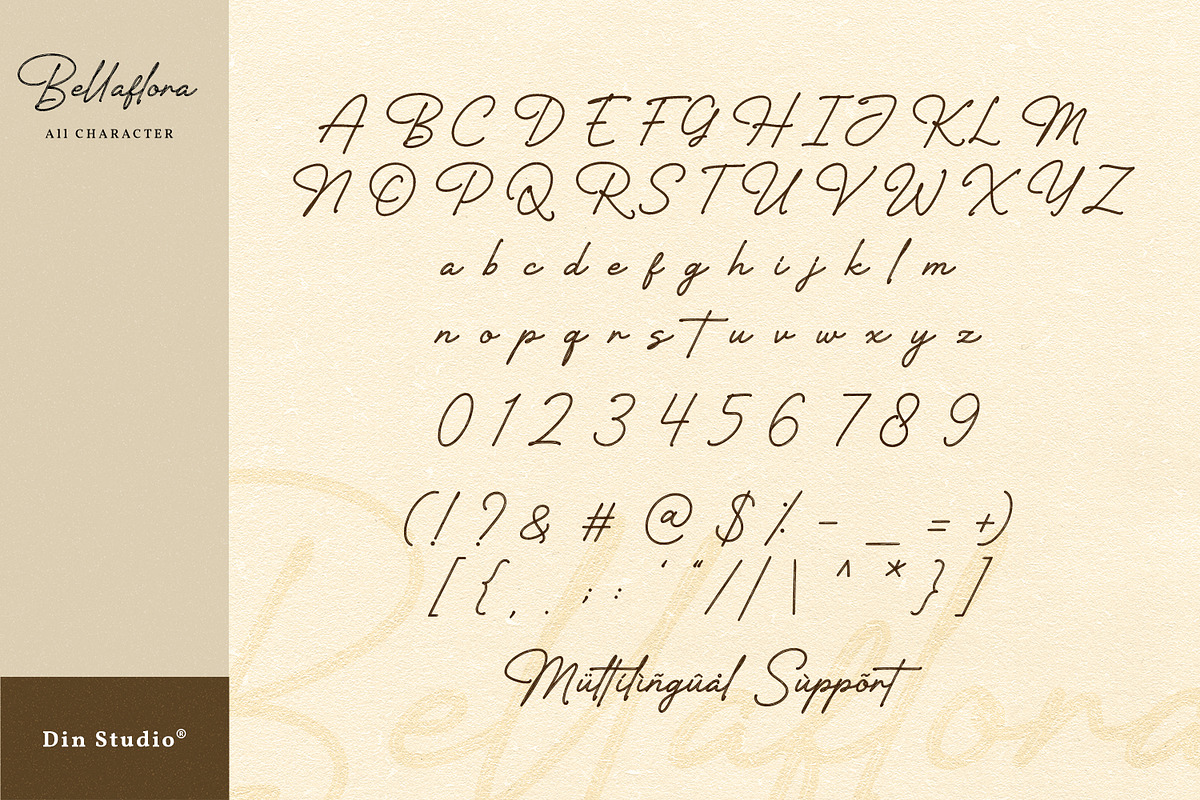 Bellaflora
All CHARACTER
A B C D E F G H I J K L M
N O P Q R S T U V W X Y Z
a b c d e f g h i j k l m
n o p q r s t u v w x y z
0 1 2 3 4 5 6 7 8 9
( ! ? & # @ $ % - _ = + )
[ { , . ; : ' " / / | \ ^ * } ]
Mültilìñgûål Sùppõrt
Bellaflora
Din Studio®